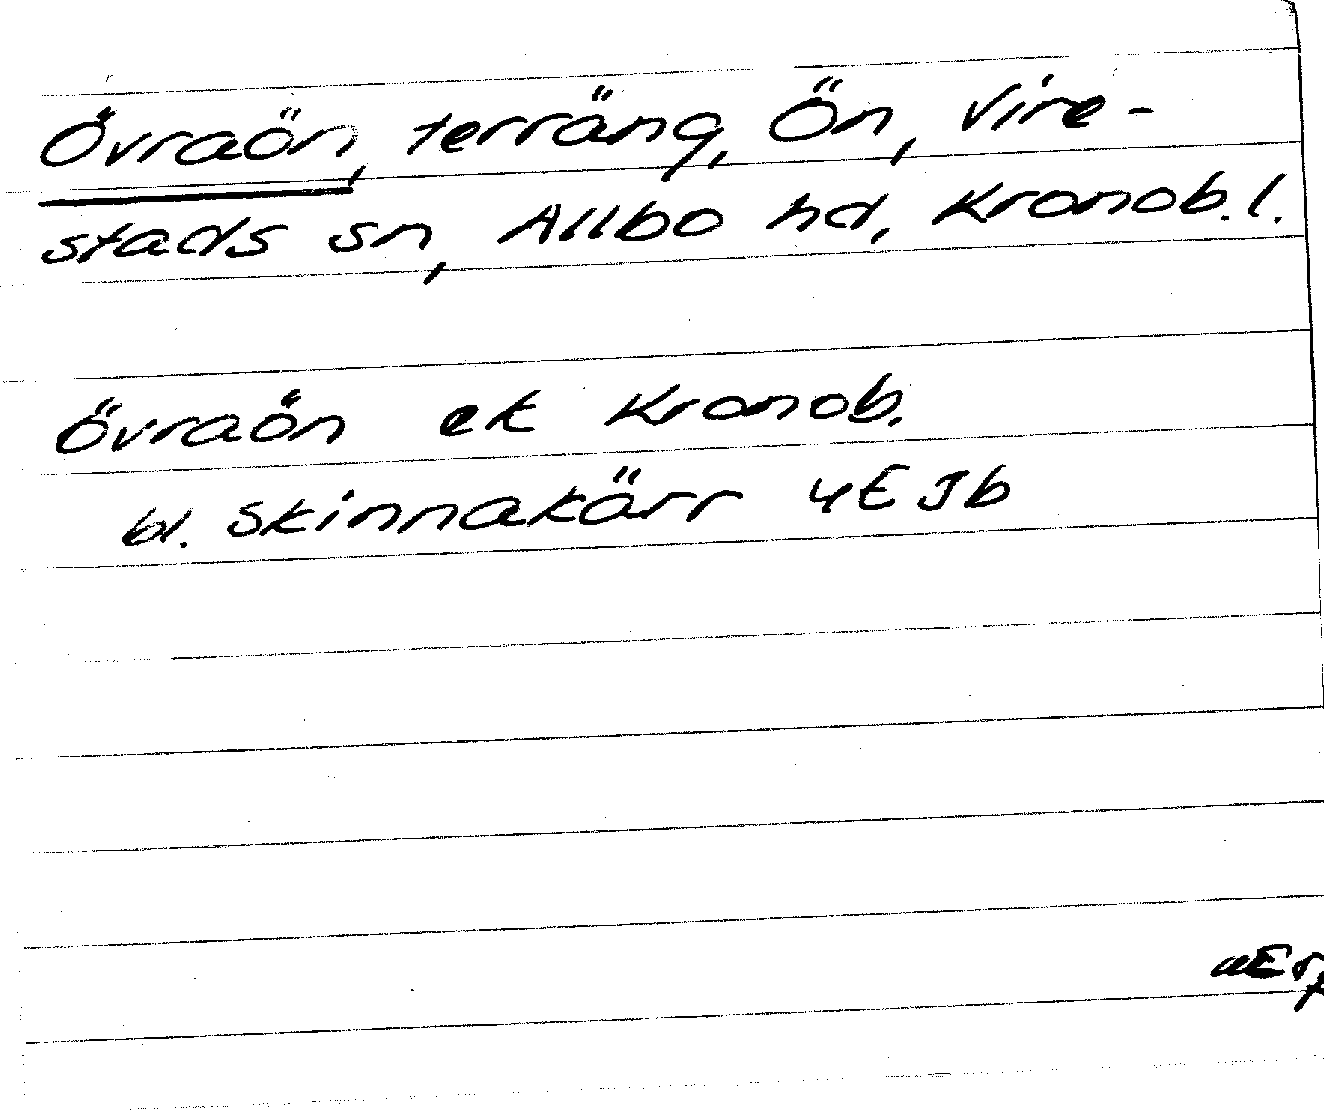 Övraön, terräng, Ön, Vire-
stads sn, Allbo hd, Kronob. l.
Övraön ek Kronob.
bl. Skinnakärr 4E Jb